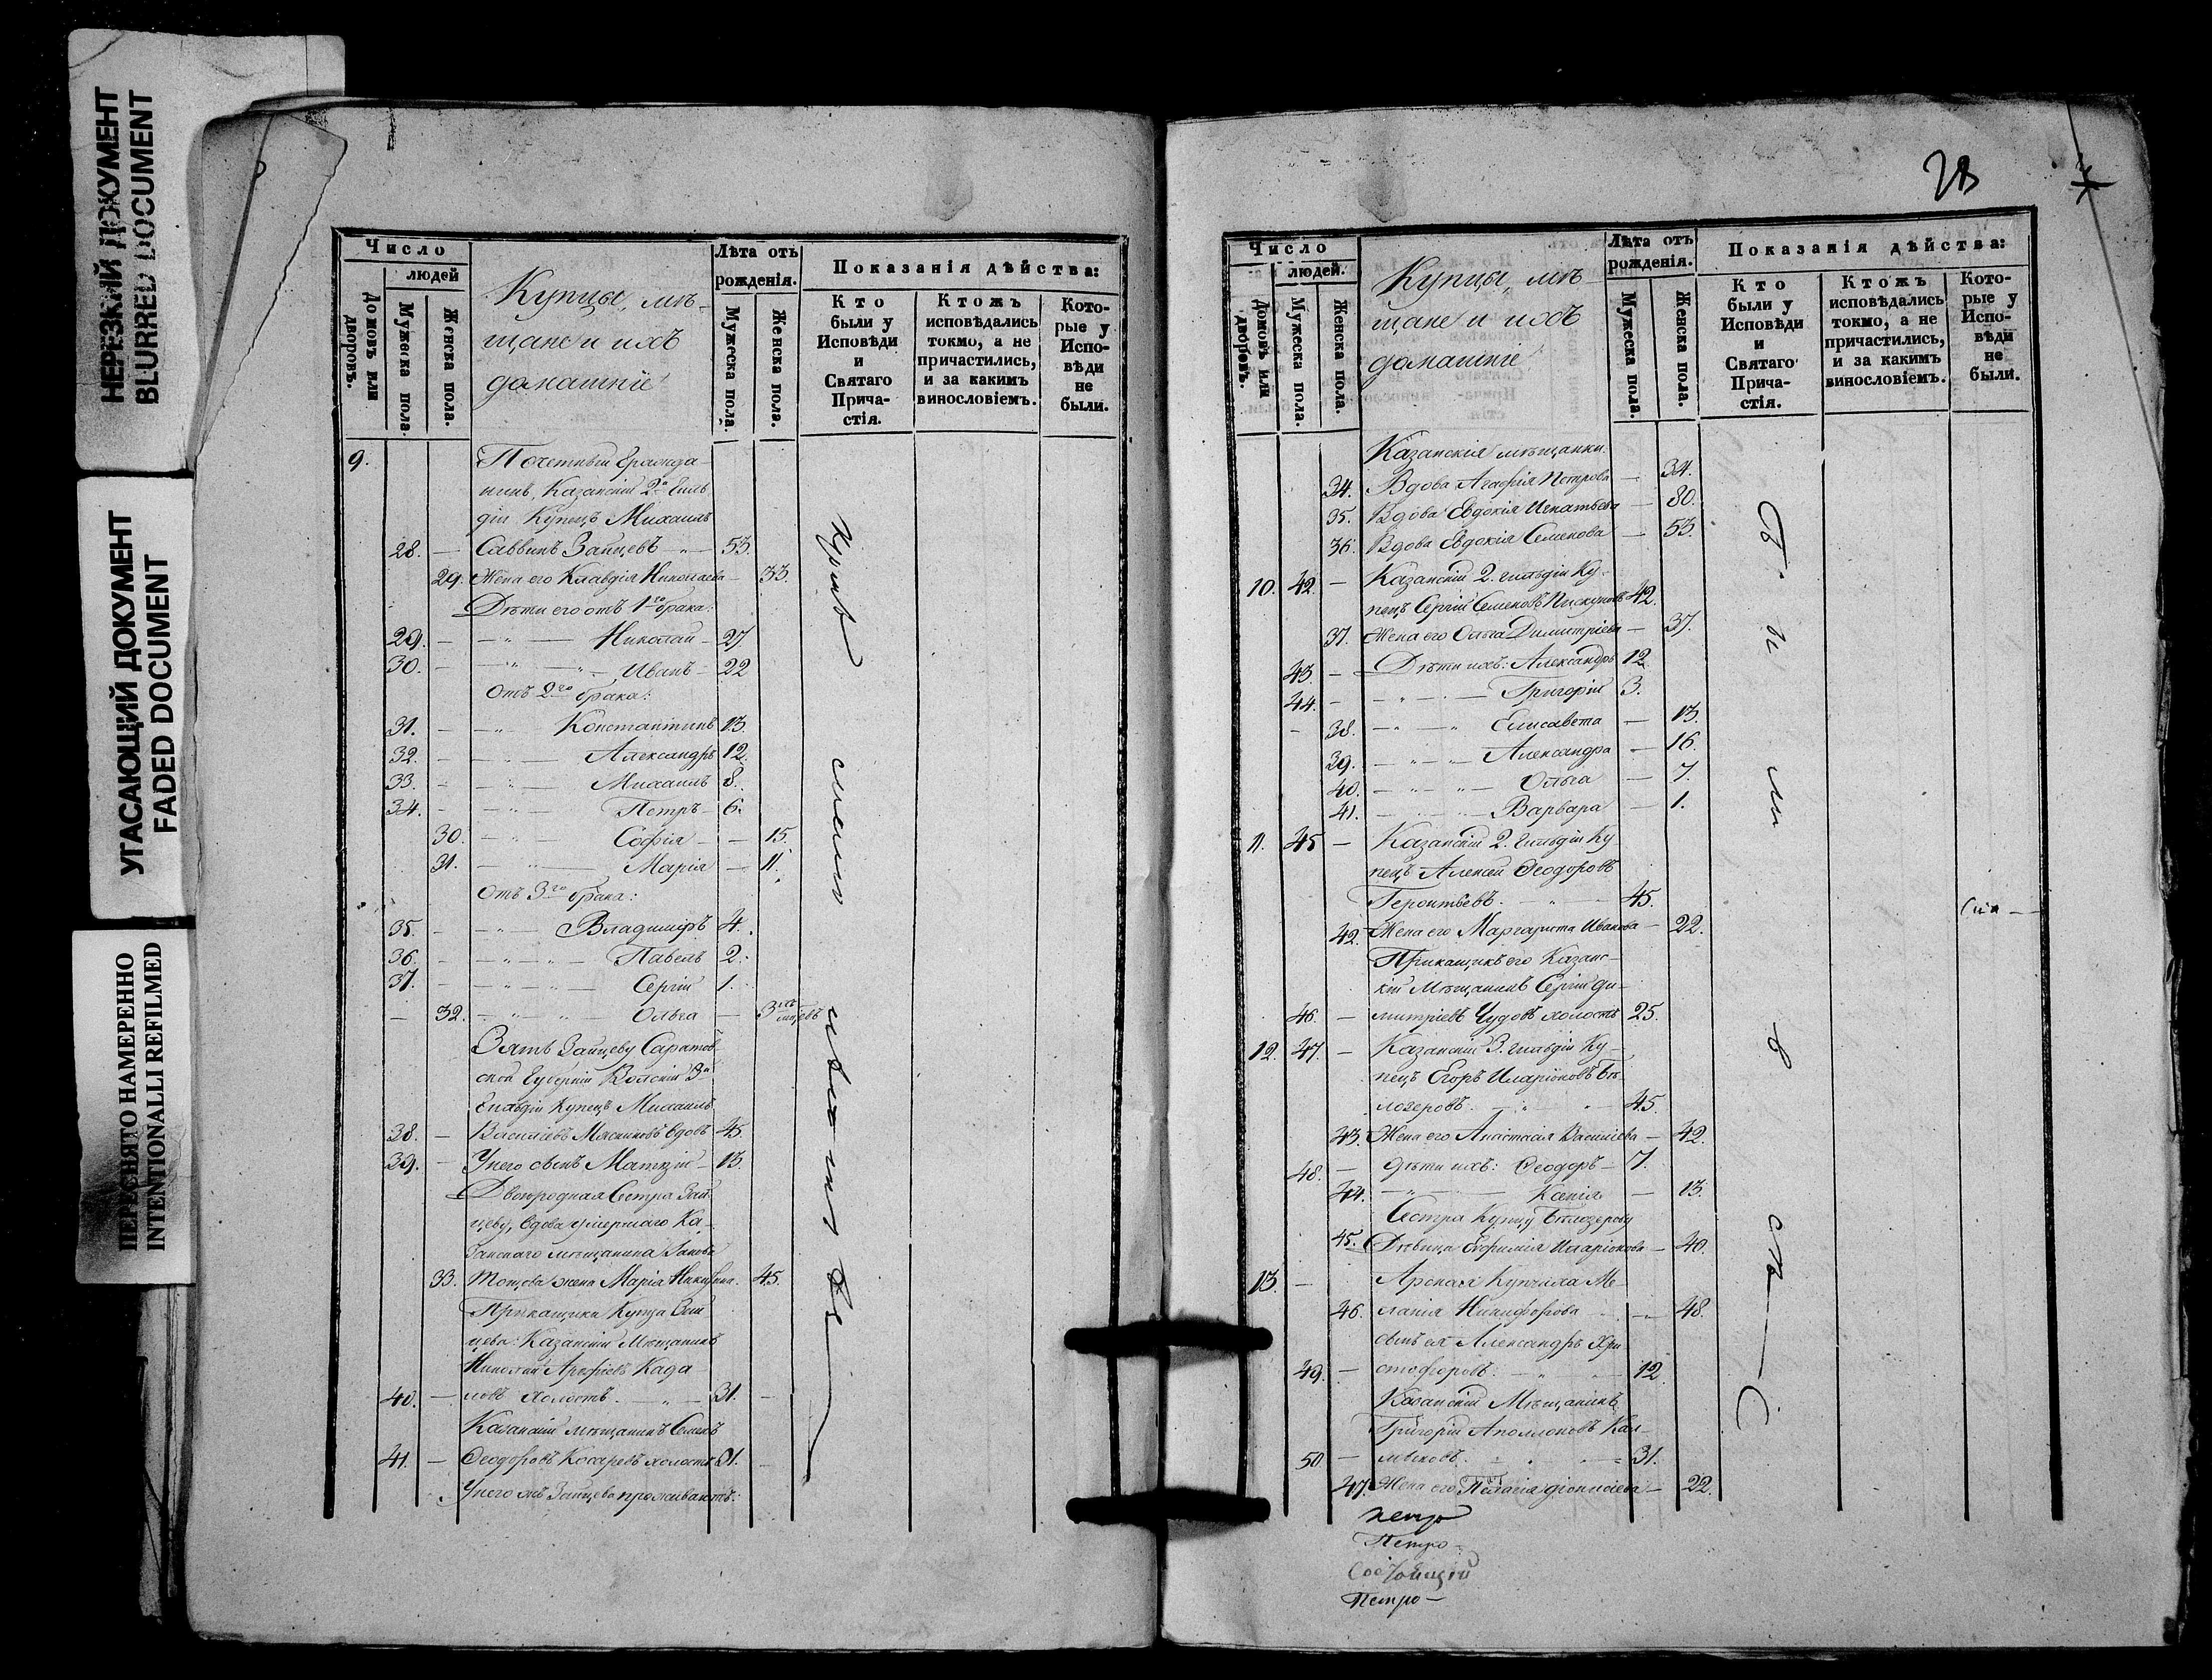 НЕРЕЗКИЙ ДОКУМЕНТ
BLURRED DOCUMENT
УГАСАЮЩИЙ ДОКУМЕНТ
FADED DOCUMENT
ПЕРЕСНЯТО НАМЕРЕННО
INTENTIONALLI REFILMED
Число
людей
Домовъ или дворовъ.
Мужеска пола.
Женска пола.
Купцы, мѣ-
щане и ихъ
домашніе
Лѣта отъ рожденія.
Мужеска пола.
Женска пола.
Показанія дѣйства:
Кто были у Исповѣди и Святаго Прича-стія.
Ктожъ исповѣдались токмо, а не причастились, и за какимъ винословіемъ.
Кото-рые у Испо-вѣди не были.
9. Почетный Гражда-
нинъ, Казанскій 2й Гиль
діи Купецъ Михаилъ
28. — Саввинъ Зайцевъ — 53.
29. Жена его Клавдія Николаева — 33.
Дѣти его отъ 1го брака:
29. — Николай — 27
30. — Иванъ — 22
Отъ 2го брака:
31. — Константинъ 13.
32. — Александръ 12.
33. — Михаилъ 8.
34. — Петръ — 6.
30. — Софія — 15.
31. — Марія — 11.
Отъ 3го брака:
35. — Владиміръ 4.
36. — Павелъ 2.
37. — Сергій 1.
— 32. — Ольга — 3хъ мцевъ
Зять Зайцеву Саратов-
ской Губерніи Волскій 3й
Гильдіи Купецъ Михаилъ
38. — Васильевъ Мясниковъ вдовъ 45.
39. — У него сынъ Матвій — 13.
Двоюродная Сестра Зай-
цеву, вдова умершаго Ка-
занскаго мѣщанина Іакова
33. жена Марія 45.
Прикащики Купца Зай-
цева: Казанскій Мѣщанинъ
Николай Када-
40. — ловъ холостъ. — 31. —
Казанскій мѣщанинъ Семенъ
41. — Ѳеодоровъ Косаревъ холостъ 21. —
У него жъ Зайцева проживаютъ:
28
Число
людей.
Домовъ или дворовъ.
Мужеска пола.
Женска пола.
Купцы, мѣ-
щане и ихъ
домашніе
Лѣта отъ рожденія.
Мужеска пола.
Женска пола.
Показанія дѣйства:
Кто были у Исповѣди и Святаго Прича-стія.
Ктожъ исповѣдались токмо, а не причастились, и за какимъ винословіемъ.
Кото-рые у Испо-вѣди не были.
Казанскія мѣщанки.
34. Вдова Агафія Петрова — 34.
35. Вдова Евдокія Игнатьева — 80.
36. Вдова Евдокія Семенова — 53.
10. 42. — Казанскій 2. гильдіи Ку-
пецъ Сергій Семеновъ Пискуновъ 42.
37. Жена его Ольга Димитріева — 37.
43. — Дѣти ихъ: Александръ 12.
44. — Григорій 3.
— 38. — Елисавета — 13.
39. — Александра — 16.
40. — Ольга — 7.
41. — Варвара — 1.
11. 45 — Казанскій 2. Гильдіи Ку
пецъ Алексѣй Ѳеодоровъ
Геронтьевъ. — 45.
42. Жена его Маргарита Иванова — 22.
Прикащикъ его Казанс-
кій Мѣщанинъ Сергій Ди-
46. — митріевъ Чудовъ холостъ 25.
12. 47. — Казанскій 3. гильдіи Ку-
пецъ Егоръ Иларіоновъ Бѣ-
лозеровъ. — 45.
43. Жена его Анастасія Василіева — 42.
48. — Дѣти ихъ: Ѳеодоръ — 7.
44. — Ксенія — 13.
Сестра Купцу Бѣлозерову
45. Дѣвица Евфимія Иларіонова — 40.
13. — Арская Купчиха Ме-
46. ланія Никифорова — 48.
сынъ ея Александръ Хри
49. — стофоровъ. — 12
Казанскій Мѣщанинъ
Григорій Аполлоновъ Кал-
50 — мыковъ. — 31.
47. Жена его Пелагія Діонисіева — 22.
Петро
Петро-
Петро —